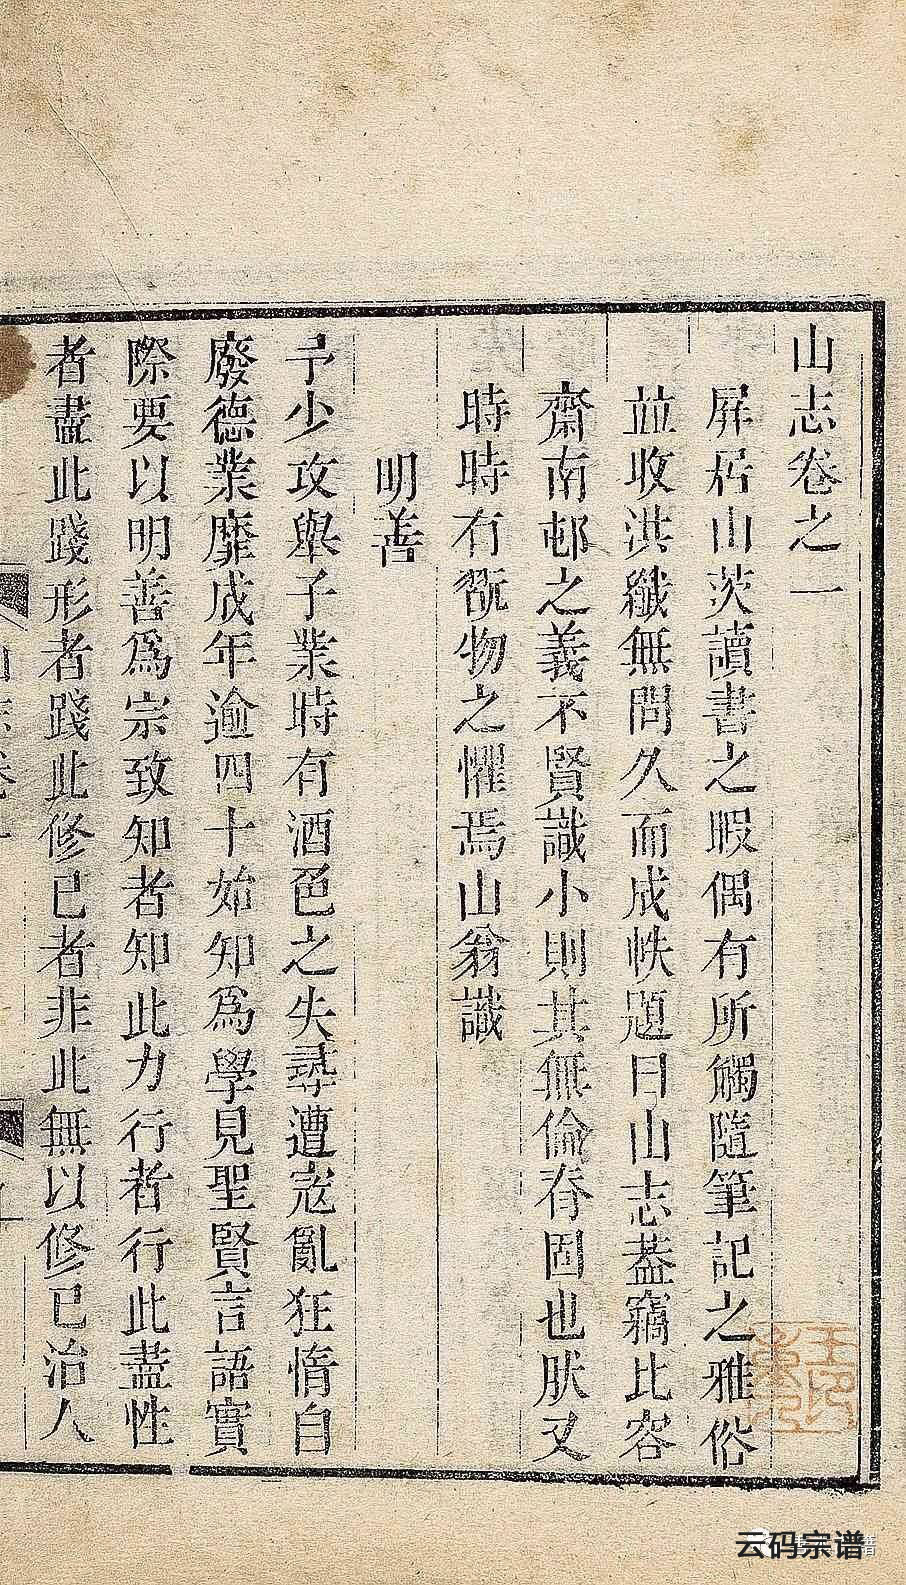 山志卷之一
屏居山茨讀書之暇偶有所觸隨筆記之雅俗
並收洪纖無問久而成帙題曰山志蓋竊比容
齋南邨之義不賢識小則其無倫脊固也肰又
時時有翫物之懼焉山翁識
明善
予少攻舉子業時有酒色之失尋遭寇亂狂惰自
廢德業靡成年逾四十始知爲學見聖賢言語實
際要以明善爲宗致知者知此力行者行此盡性
者盡此踐形者踐此修已者非此無以修已治人
云码宗谱